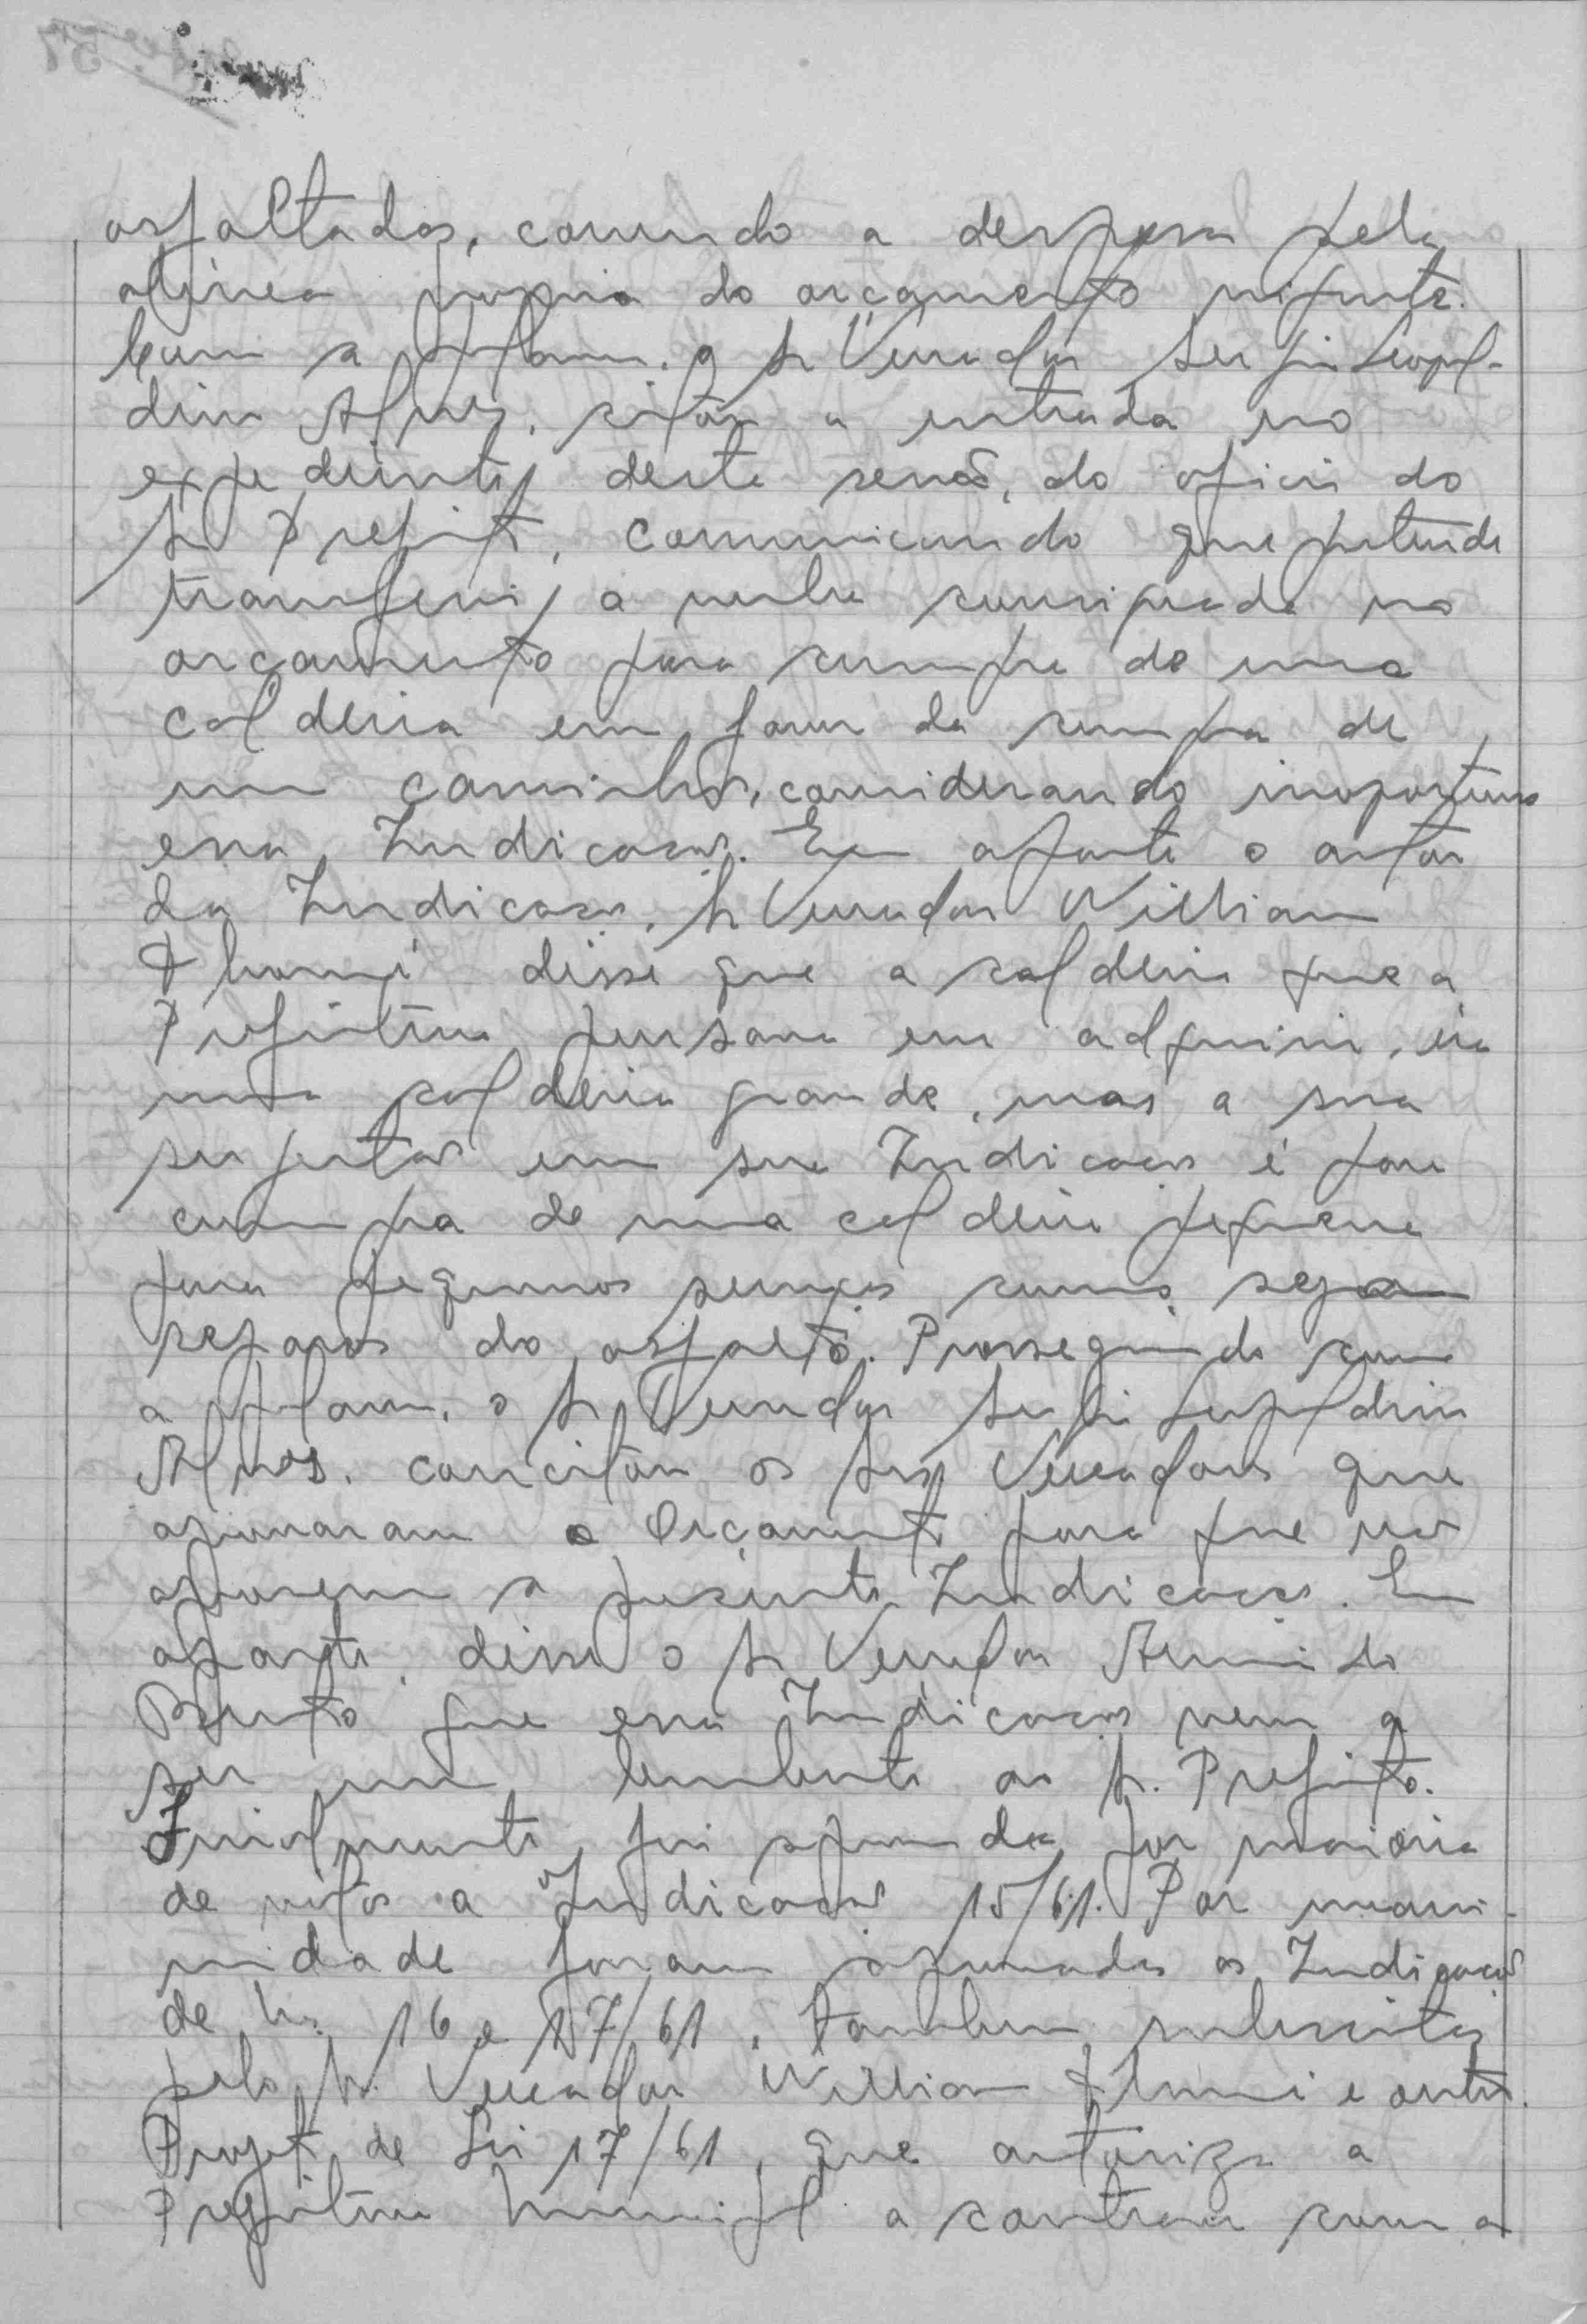 asfaltadas, correndo a despesa pela
alinea propria do orçamento vigente.
Com a palavra, o Sr Vereador Sergio Leopol-
dino Alves, citou a entrada no
expediente desta sessão, do oficio do
Sr Prefeito, comunicando que pretende
transferir a verba consignada no
orçamento para compra de uma
caldeira em favor da compra de
um caminhão, considerando inoportuna
essa Indicação. Em aparte o autor
da Indicação, Sr Vereador William
disse que a caldeira que a
Prefeitura pensava em adquirir, era
uma caldeira grande, mas a sua
sugestão em sua Indicação é para
compra de uma caldeira pequena
para pequenos serviços como sejam
reparos do asfalto. Prosseguindo com
a palavra, o Sr Vereador Sergio Leopoldino
Alves, concitou os Srs Vereadores que
aprovaram o Orçamento para que não
aprovem a presente Indicação. Em
aparte, disse o Sr Vereador Armindo
que essa Indicação vem a
ser um lembrete ao Sr. Prefeito.
Finalmente foi aprovada por maioria
de votos a Indicação 15/61. Por unani-
midade foram aprovadas as Indicações
de ns. 16 e 17/61, tambem subscritas
pelo Sr. Vereador William e outros.
Projeto de Lei 17/61, que autoriza a
Prefeitura Municipal a contrair com a